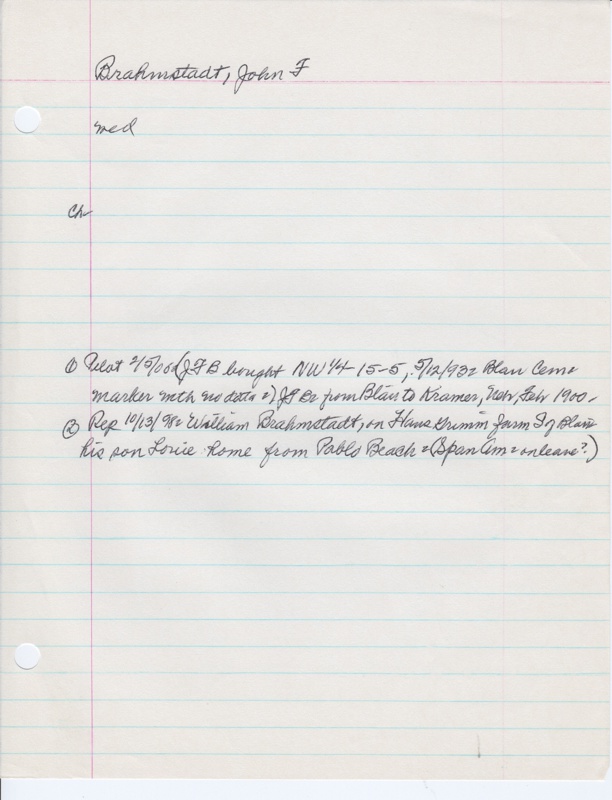 Brahmstadt, John F
med
Ch
① Pilot 2/5/06 (JFB bought NW 1/4 15-5, 5/12/93= Blair Cem=
marker with no data =) JF B= from Blair to Kramer, Nebr, Feb 1900.
② Rep 10/13/98= William Brahmstadt, on Hans Grimm farm S of Blair
his son Louie home from Pablo Beach = (Span Am = on leave?)